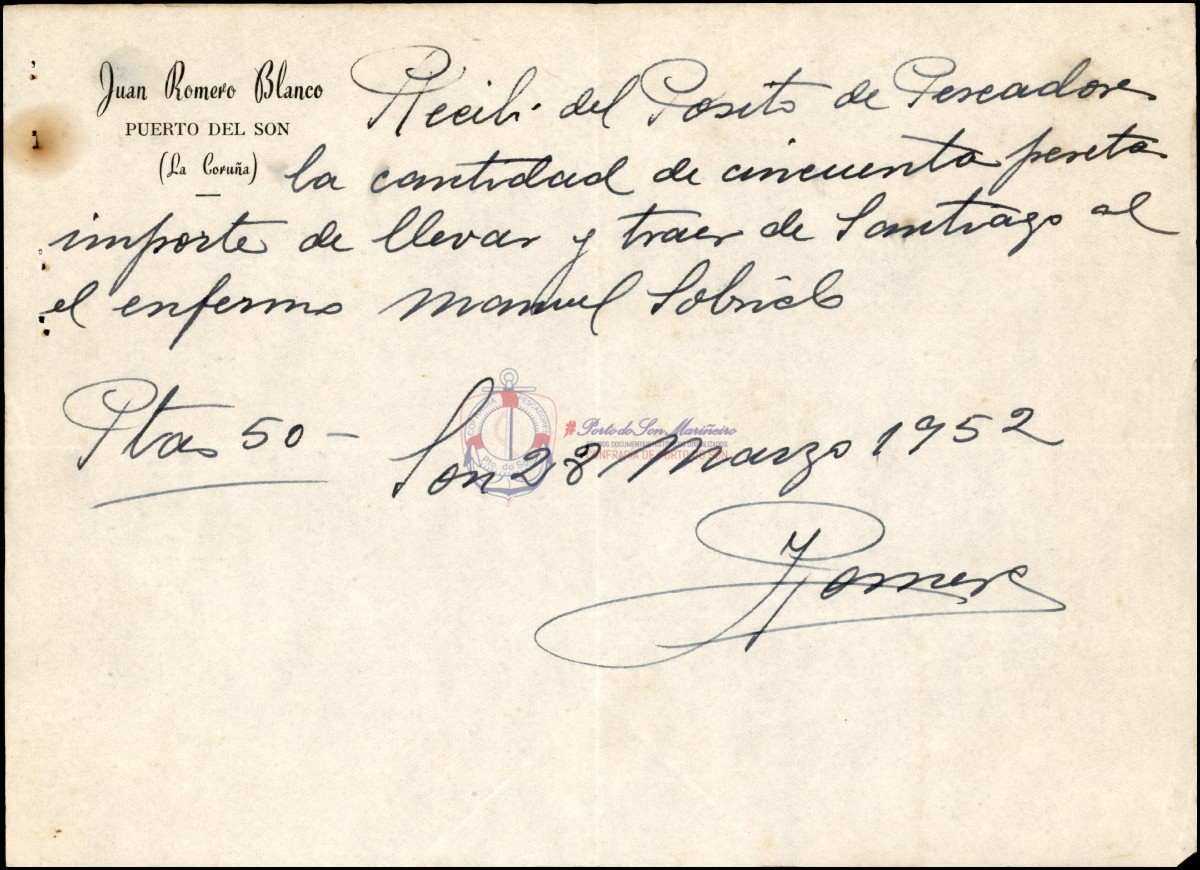 Juan Romero Blanco
PUERTO DEL SON
(La Coruña)
Recibí del Posito de Pescadores
la cantidad de cincuenta peseta
importe de llevar y traer de Santiago al
el enfermo Manuel
Ptas 50 -
Son 28 Marzo 1952
#Porto do Son Mariñeiro
CONFRARÍA DE PORTO DO SON
Pto. do Son
Romero